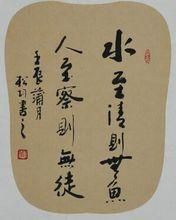 水至清則無魚
人至察則無徒
壬辰蒲月
松川書之